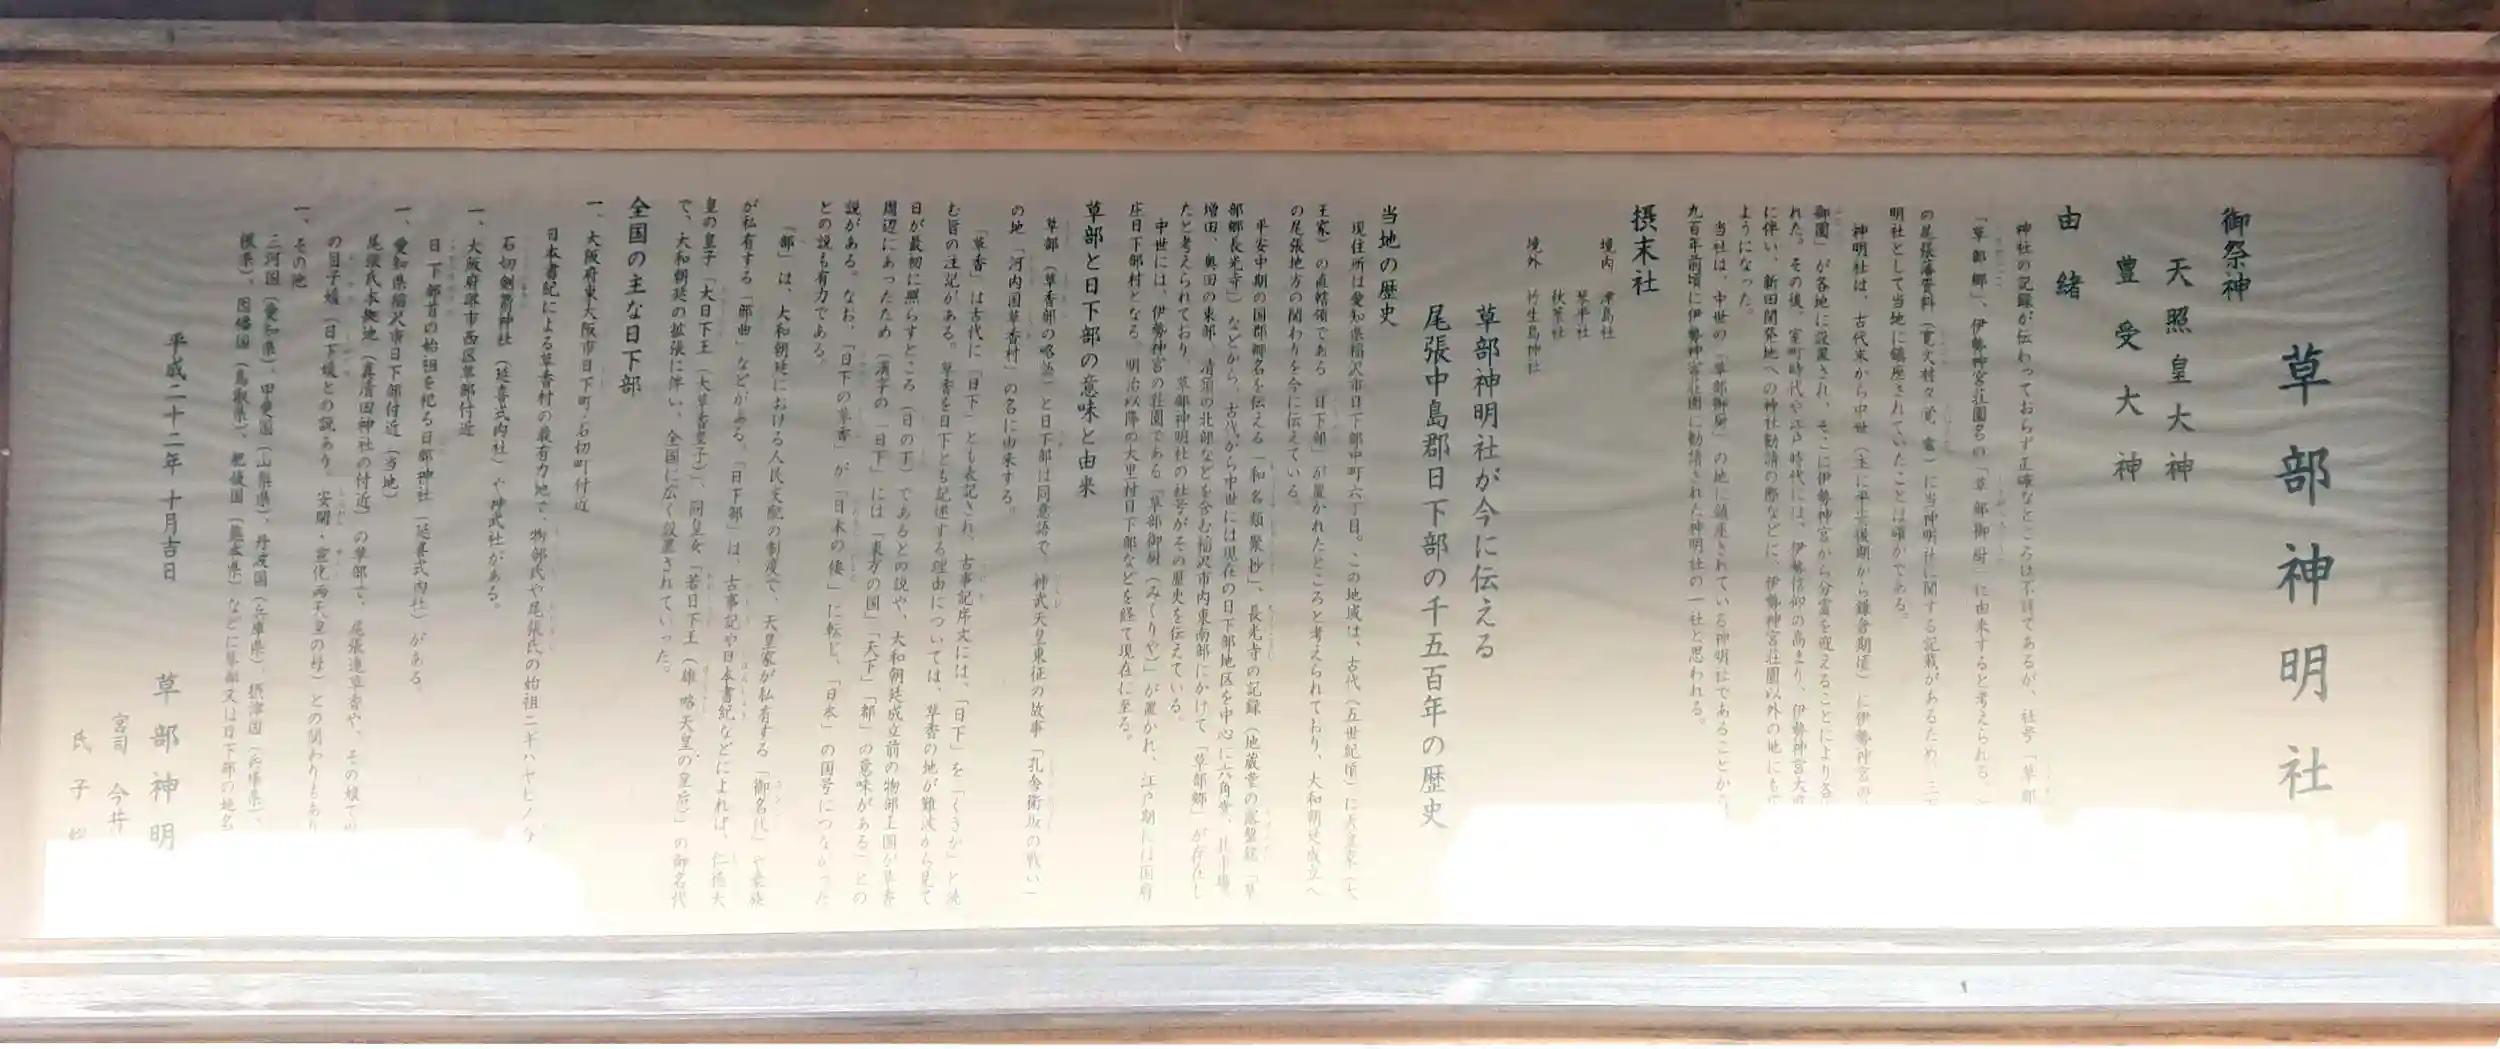 草部神明社
御祭神
天照皇大神
豊受大神
由緒
神社の記録が伝わっておらず正確なところは不詳であるが、社号「草部
「草部郷」、伊勢神宮荘園名の「草部御厨」に由来すると考えられる。
の尾張藩資料(寛文村々覚書)に当神明社に関する記載があるため、
明社として当地に鎮座されていたことは確かである。
神明社は、古代末から中世(主に平安後期から鎌倉期頃)に伊勢神宮の
御園」が各地に設置され、そこに伊勢神宮から分霊を迎えることにより各
れた。その後、室町時代や江戸時代には、伊勢信仰の高まり、伊勢神宮大
に伴い、新田開発地への神社勧請の際などに、伊勢神宮荘園以外の地にも
ようになった。
当社は、中世の「草部御厨」の地に鎮座されている神明社であることから
九百年前頃に伊勢神宮荘園に勧請された神明社の一社と思われる。
摂末社
境内 津島社
琴平社
秋葉社
境外 竹生島神社
草部神明社が今に伝える
尾張中島郡日下部の千五百年の歴史
当地の歴史
現住所は愛知県稲沢市日下部中町六丁目。この地域は、古代(五世紀頃)に天皇家(大
王家)の直轄領である「日下部」が置かれたところと考えられており、大和朝廷成立へ
の尾張地方の関わりを今に伝えている。
平安中期の国郡郷名を伝える「和名類聚抄」、長光寺の記録(地蔵堂の露盤銘「草
部郷長光寺」)などから、古代から中世には現在の日下部地区を中心に六角堂、北市場、
増田、奥田の東部、清須の北部などを含む稲沢市内東南部にかけて「草部郷」が存在し
たと考えられており、草部神明社の社号がその歴史を伝えている。
中世には、伊勢神宮の荘園である「草部御厨(みくりや)」が置かれ、江戸期には国府
庄日下部村となる。明治以降の大里村日下部などを経て現在に至る。
草部と日下部の意味と由来
草部(草香部の略語)と日下部は同意語で、神武天皇東征の故事「孔舎衛坂の戦い」
の地「河内国草香村」の名に由来する。
「草香」は古代に「日下」とも表記され、古事記序文には、「日下」を「くさか」と読
む旨の注記がある。草香を日下とも記述する理由については、草香の地が難波から見て
日が最初に照らすところ(日の下)であるとの説や、大和朝廷成立前の物部王国が草香
周辺にあったため(漢字の「日下」には「東方の国」「天下」「都」の意味がある)との
説がある。なお、「日下の草香」が「日本の倭」に転じ、「日本」の国号につながった
との説も有力である。
「部」は、大和朝廷における人民支配の制度で、天皇家が私有する「御名代」や豪族
が私有する「部曲」などがある。「日下部」は、古事記や日本書紀などによれば、仁徳天
皇の皇子「大日下王(大草香皇子)、同皇女「若日下王(雄略天皇の皇后)」の御名代
で、大和朝廷の拡張に伴い、全国に広く設置されていった。
全国の主な日下部
一、大阪府東大阪市日下町・石切町付近
日本書紀による草香村の最有力地で、物部氏や尾張氏の始祖ニギハヤヒノ
石切剣箭神社(延喜式内社)や神武社がある。
一、大阪府堺市西区草部付近
日下部首の始祖を祀る日部神社(延喜式内社)がある。
一、愛知県稲沢市日下部付近(当地)
尾張氏本拠地(真清田神社の付近)の草部で、尾張連草香や、その娘で
の目子媛(日下媛との説あり。安閑・宣化両天皇の母)との関わりもあり
一、その他
三河国(愛知県)、甲斐国(山梨県)、丹波国(兵庫県)、摂津国(兵庫県)、
根県)、因幡国(鳥取県)、肥後国(熊本県)などに草部又は日下部の地名
平成二十二年十月吉日
草部神明
宮司 今井
氏子